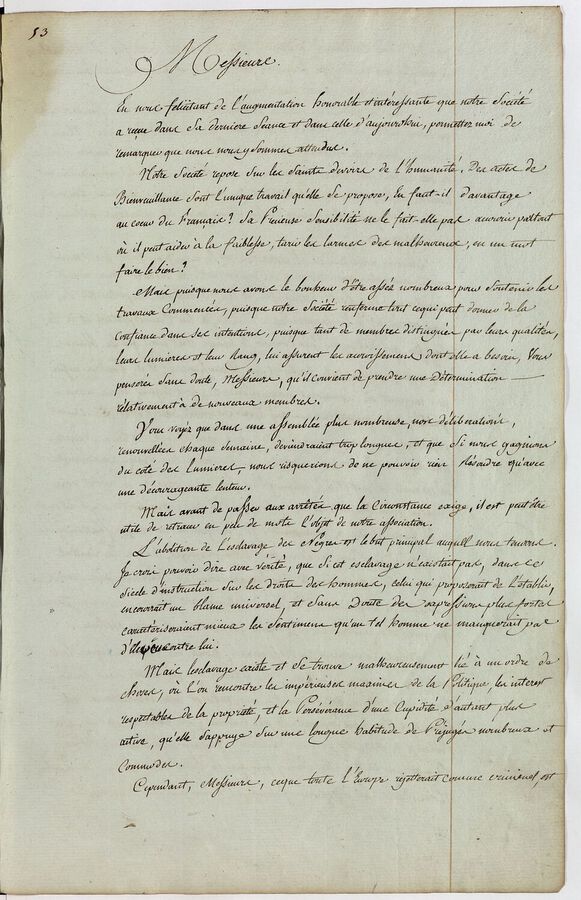 53
Messieurs.
En nous felicitant de l'augmentation honorable et intéressante que notre Société
a reçue dans sa derniere Séance et dans celle d'aujourdhui, permettez moi de
remarquer que nous nous y sommes attendus.
Notre Société repose sur les Saints devoirs de l'humanité, Des actes de
Bienveillance sont l'unique travail qu'elle se propose, En faut-il davantage
au coeur du Français ? Sa Précieuse Sensibilité ne le fait-elle pas accourir partout
où il peut aider à la faiblesse, tarir les larmes des malheureux, en un mot
faire le bien ?
Mais puisque nous avons le bonheur d'être assés nombreux pour soutenir les
travaux Commencés, puisque notre Société renferme tout cequi peut donner de la
Confiance dans ses intentions, puisque tant de membres distingués par leurs qualités,
leurs lumieres et leur Rang, lui assurent les accroissemens dont elle a besoin, Vous
penserés Sans doute, Messieurs, qu'il convient de prendre une Détermination
rélativement à de nouveaux membres.
Vous voyez que dans une assemblée plus nombreuse, nos déliberations,
renouvellées chaque Semaine, deviendraient trop longues, et que Si nous gagnions
du côté des Lumieres, nous risquerions de ne pouvoir rien Résoudre qu'avec
une décourageante lenteur.
Mais avant de passer aux arrêtés que la Circonstance exige, il est peut être
utile de retracer en peu de mots l'objet de notre association.
L'abolition de L'esclavage des Négres est le but principal auquel nous tendons.
Je crois pouvoir dire avec vérité, que Si cet esclavage n'existait pas, dans ce
siecle d'instruction Sur les Droits des hommes, celui qui proposerait de l'établir,
encourrait un blame universel, et Sans Doute des expressions plus fortes
caractériseraient mieux les Sentimens qu'un tel homme ne manquerait pas
contre lui.
Mais l'esclavage existe et se trouve malheureusement lié à un ordre de
choses, où L'on rencontre les impérieuses maximes de la Politique, les interets
respectables de la propriété, et la Persévérance d'une Cupidité d'autant plus
active, qu'elle s'appuye Sur une longue habitude de Préjugés nombreux et
Commodes.
Cependant, Messieurs, ceque toute l'Europe rejetterait comme criminel, est